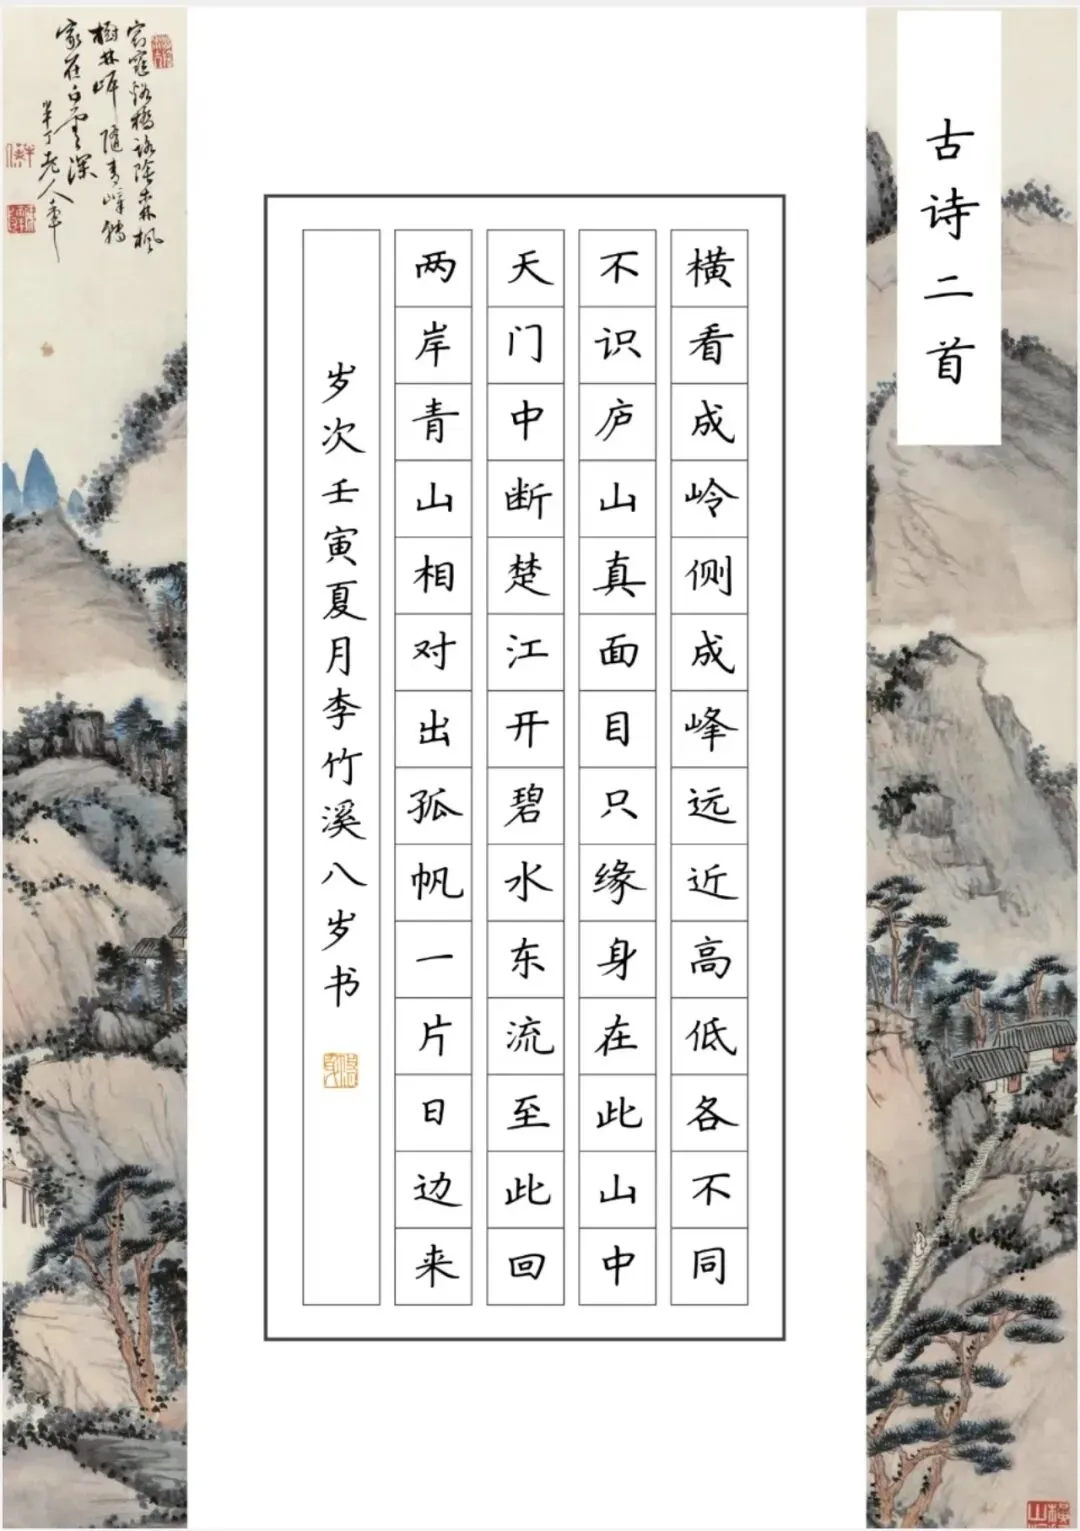 古诗二首
横看成岭侧成峰远近高低各不同
不识庐山真面目只缘身在此山中
天门中断楚江开碧水东流至此回
两岸青山相对出孤帆一片日边来
岁次壬寅夏月李竹溪八岁书
家在白云深